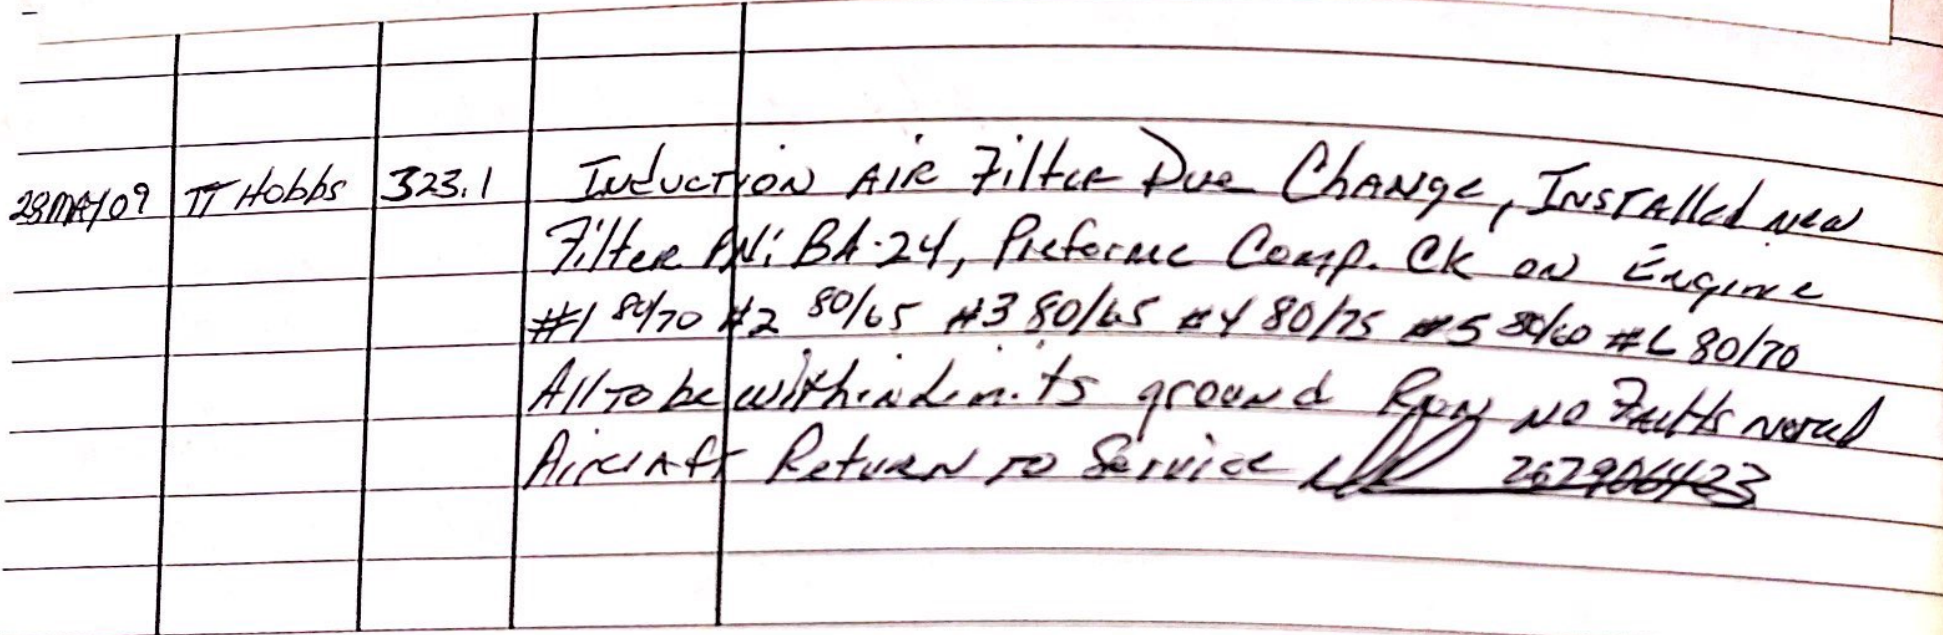 28MAY09 TT Hobbs 323.1 Induction Air Filter Due Change, Installed new
Filter PN: BA-24, Preforme Comp. CK on Engine
#1 80/70 #2 80/65 #3 80/65 #4 80/75 #5 80/60 #6 80/70
All to be within Limits ground Run no Faults noted
Aircraft Return to Service 262906423